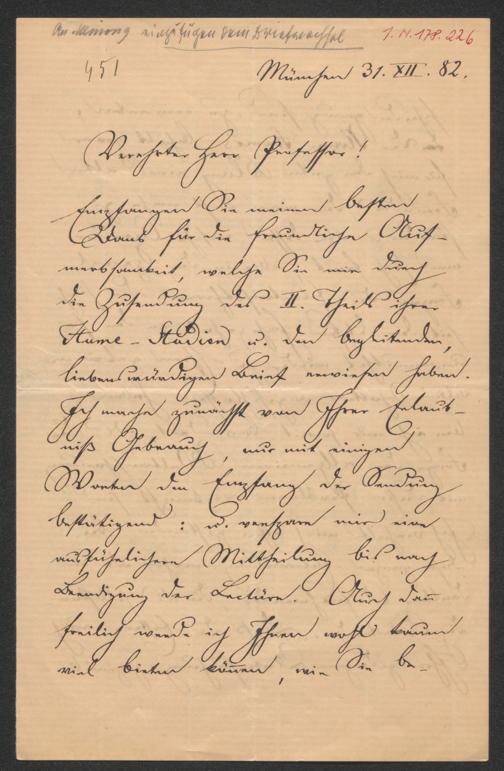 An Meinong einzufügen dem Briefwechsel
I. N. 178.226
451
München 31. XII. 82.
Verehrter Herr Professor!
Empfangen Sie meinen besten
Dank für die freundliche Auf-
merksamkeit, welche Sie mir durch
die Zusendung des II. Theils ihrer
Hume-Studien u. den begleitenden,
liebenswürdigen Brief erwiesen haben.
Ich mache zunächst von Ihrer Erlaub-
niß Gebrauch, nur mit einigen
Worten den Empfang der Sendung
bestätigend: u. verspare mir eine
ausführlichere Mittheilung bis nach
Beendigung der Lectüre. Auch dañ
freilich werde ich Ihnen wohl kaum
viel bieten köñen, wie Sie be-